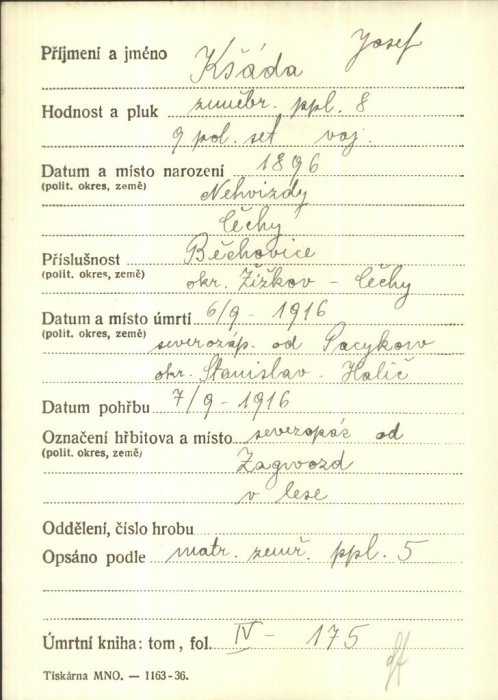 Příjmení a jméno Kšáda Josef
Hodnost a pluk zeměbr. ppl. 8
9 pol. set. voj.
Datum a místo narození 1896
(polit. okres, země) Nehvizdy
Čechy
Příslušnost Běchovice
(polit. okres, země) okr. Žižkov - Čechy
Datum a místo úmrtí 6/9 - 1916
(polit. okres, země) severozáp. od Pacykow
okr. Stanislav - Halič
Datum pohřbu 7/9 - 1916
Označení hřbitova a místo severozáp od
(polit. okres, země) Zagwozd
v lese
Oddělení, číslo hrobu
Opsáno podle matr. zemř. ppl. 5
Úmrtní kniha: tom, fol. IV - 175
Tiskárna MNO. — 1163-36.